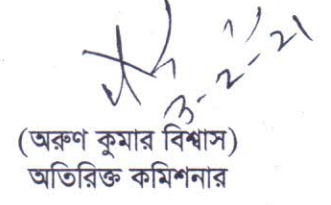 3-2-21
(অরুণ কুমার বিশ্বাস)
অতিরিক্ত কমিশনার